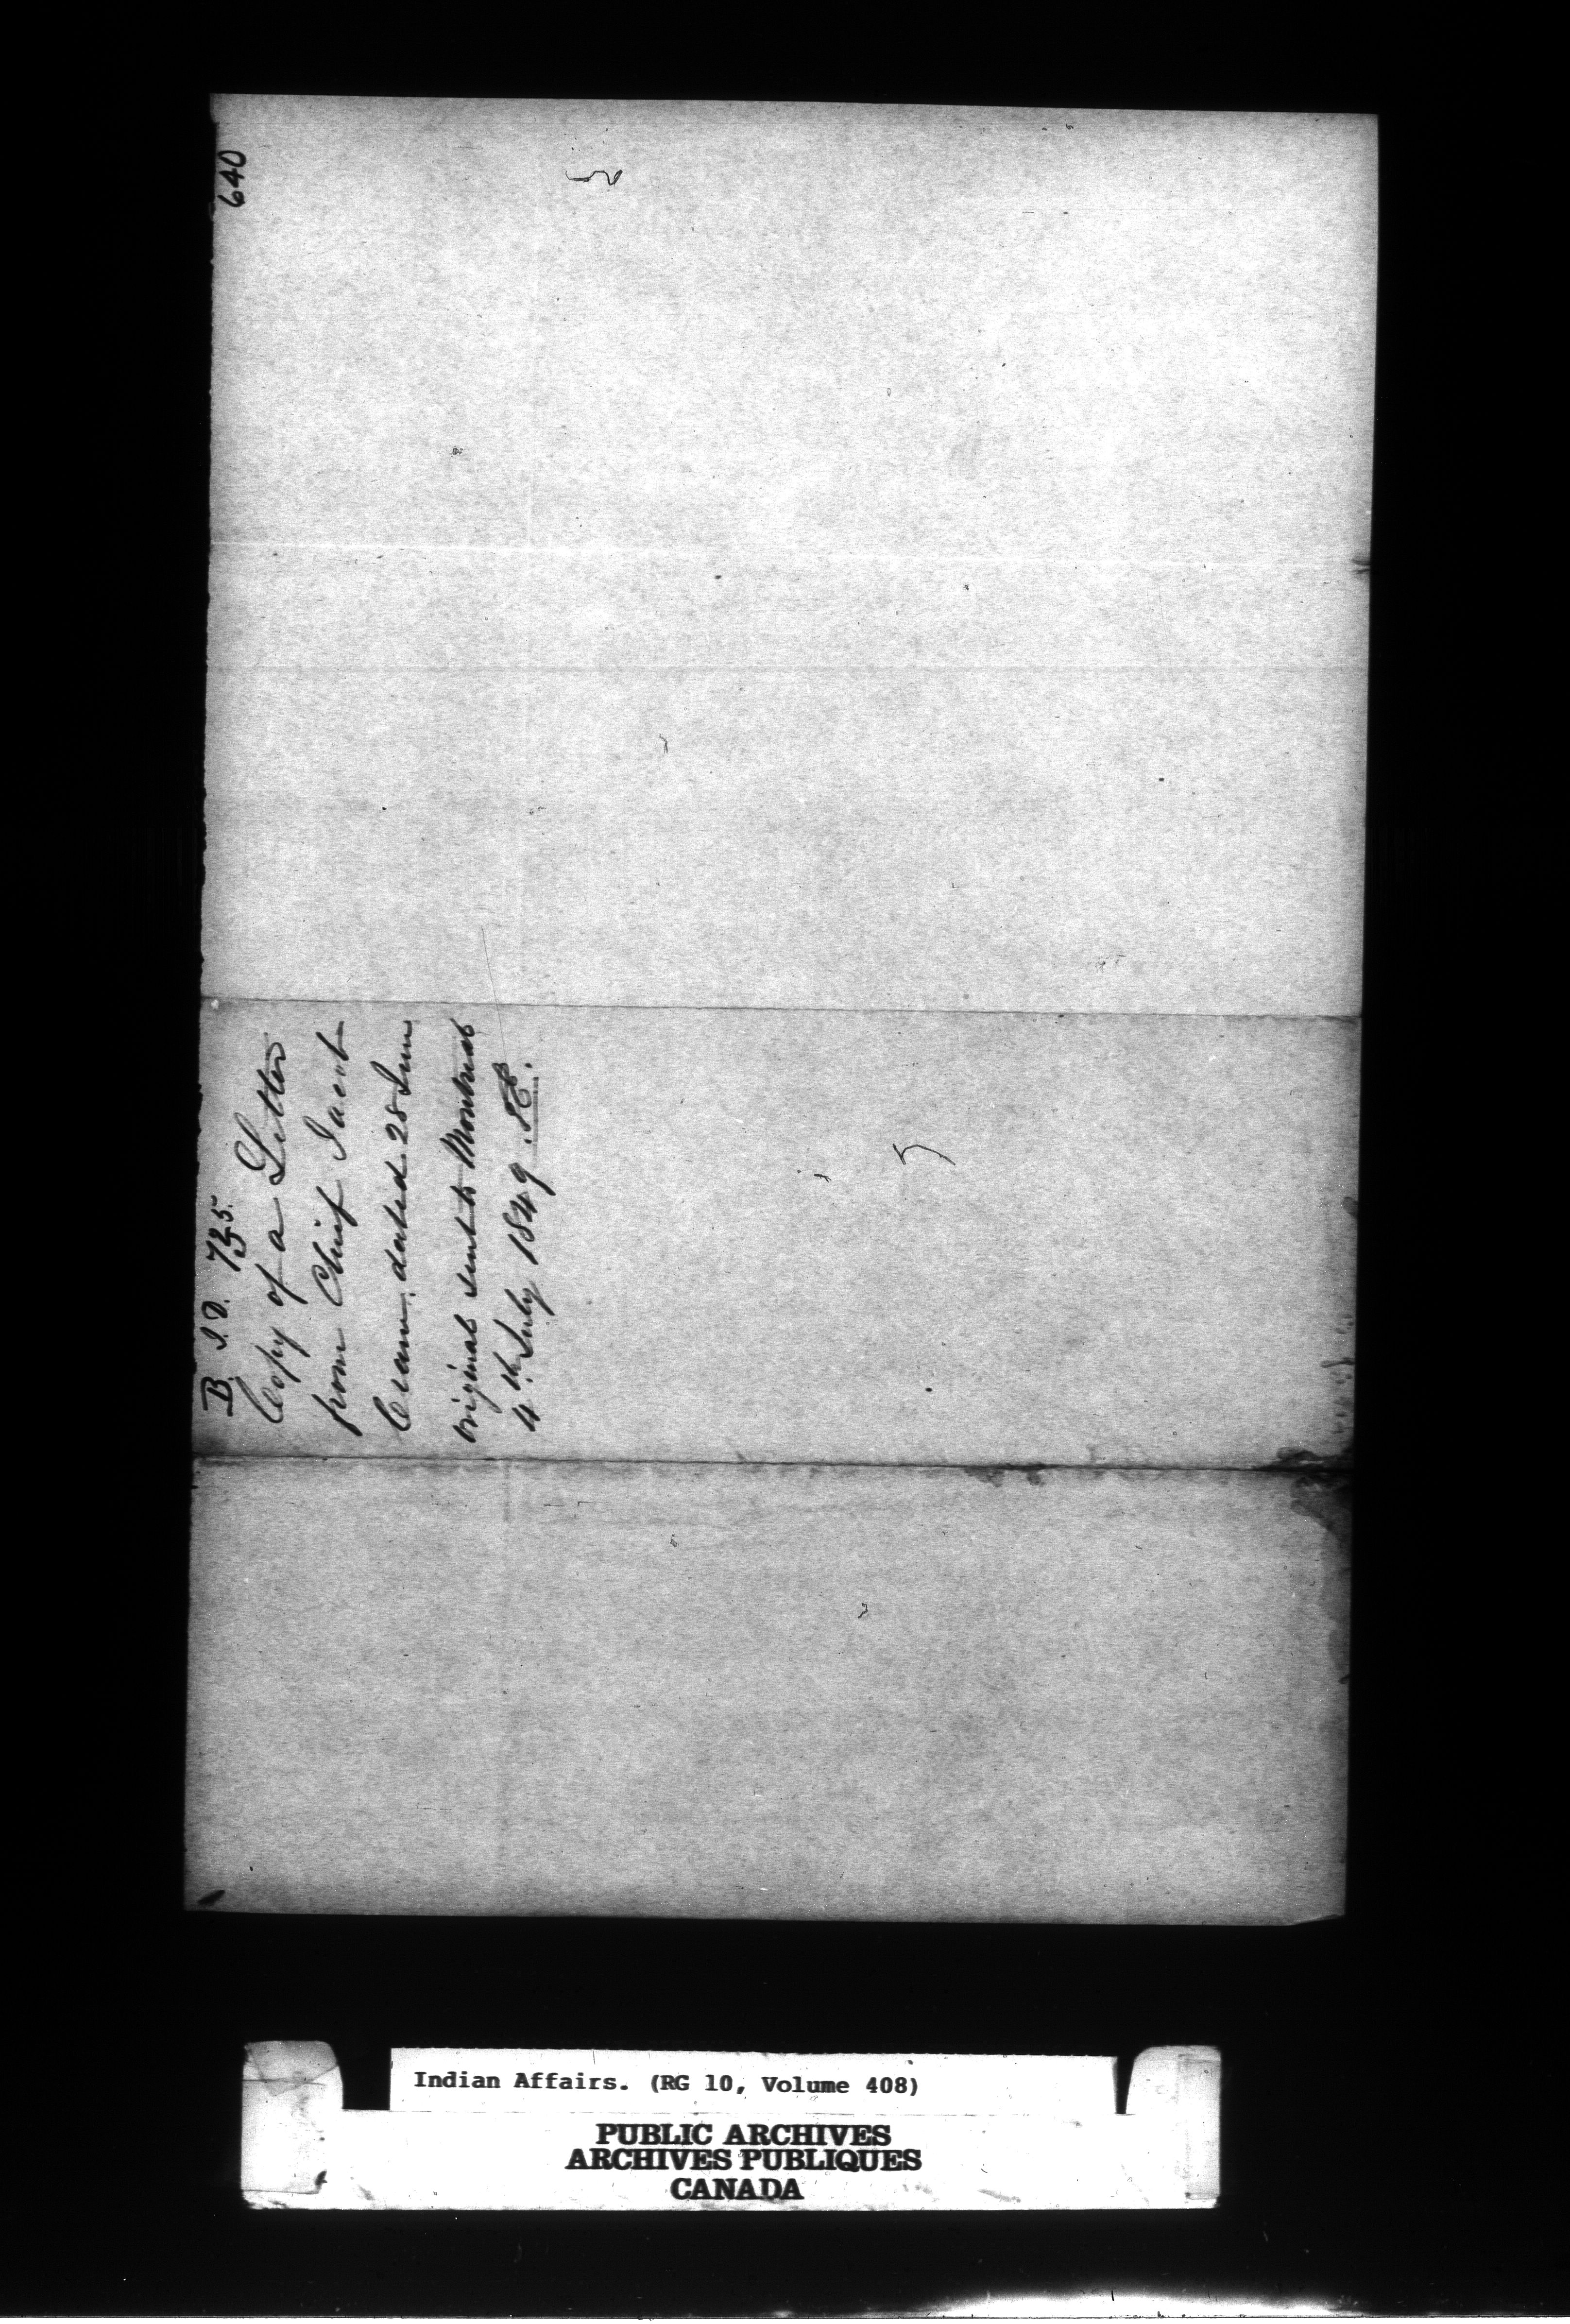 640
B I.D. 735.
Copy of a Letter
from Chief Jacob
Crane, dated 28 June
original sent to Montreal
4th July 1849.
Indian Affairs. (RG 10, Volume 408)
PUBLIC ARCHIVES
ARCHIVES PUBLIQUES
CANADA